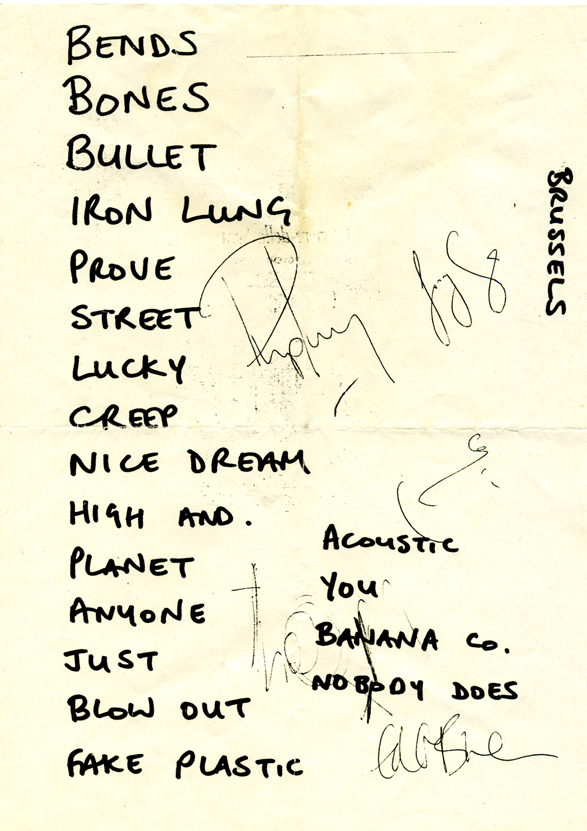 BENDS
BONES
BULLET
IRON LUNG
PROVE
STREET
LUCKY
CREEP
NICE DREAM
HIGH AND.
PLANET
ANYONE
JUST
BLOW OUT
FAKE PLASTIC
ACOUSTIC
YOU
BANANA CO.
NOBODY DOES
BRUSSELS